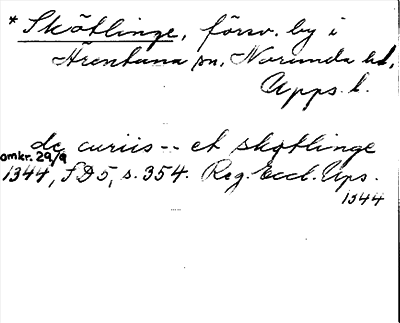 * Skötlinge, försv. by i
Ärentuna sn, Norunda hd,
Upps. l.
de curiis -- et skøtlinge
omkr. 29/9
1344, SD 5, s. 354. Reg. Eccl. Ups.
1344